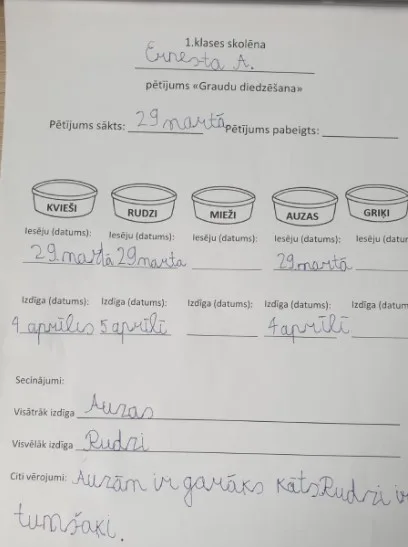 1.klases skolēna
Ernesta A.
pētījums «Graudu diedzēšana»
Pētījums sākts: 29 martā Pētījums pabeigts:
KVIEŠI RUDZI MIEŽI AUZAS GRIĶI
Iesēju (datums): Iesēju (datums): Iesēju (datums): Iesēju (datums): Iesēju (datum
29 martā 29 marta 29 martā
Izdīga (datums): Izdīga (datums): Izdīga (datums): Izdīga (datums): Izdīga (datum
4 aprīlis 5 aprīlī 4 aprīlī
Secinājumi:
Visātrāk izdīga Auzas
Visvēlāk izdīga Rudzi
Citi vērojumi: Auzām ir garāks kāts Rudzi ir
tumšaki.